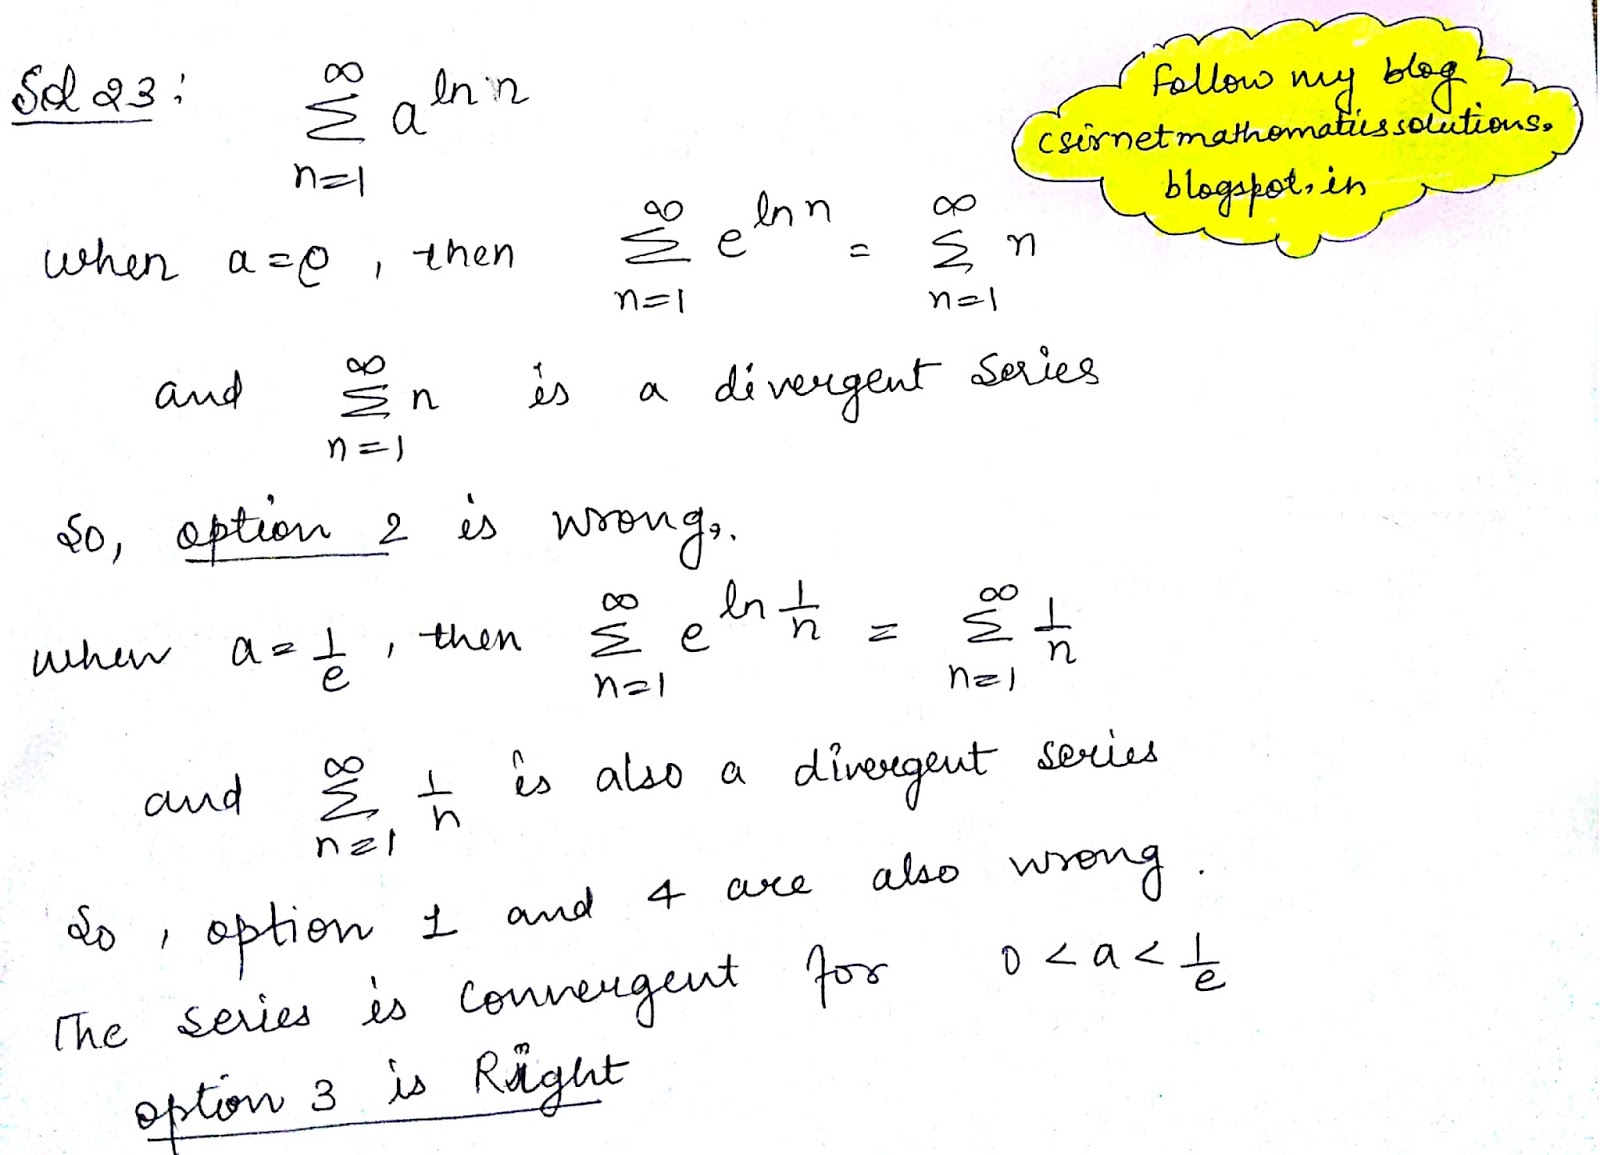 Sol 23:
∞
∑ a^{ln n}
n=1
Follow my blog
csirnetmathematicssolutions.
blogspot.in
When a=e, then ∑_{n=1}^{∞} e^{ln n} = ∑_{n=1}^{∞} n
and ∑_{n=1}^{∞} n is a divergent series
So, option 2 is wrong.
when a = 1/e, then ∑_{n=1}^{∞} e^{ln 1/n} = ∑_{n=1}^{∞} 1/n
and ∑_{n=1}^{∞} 1/n is also a divergent series
So, option 1 and 4 are also wrong.
The series is convergent for 0 < a < 1/e
option 3 is Right